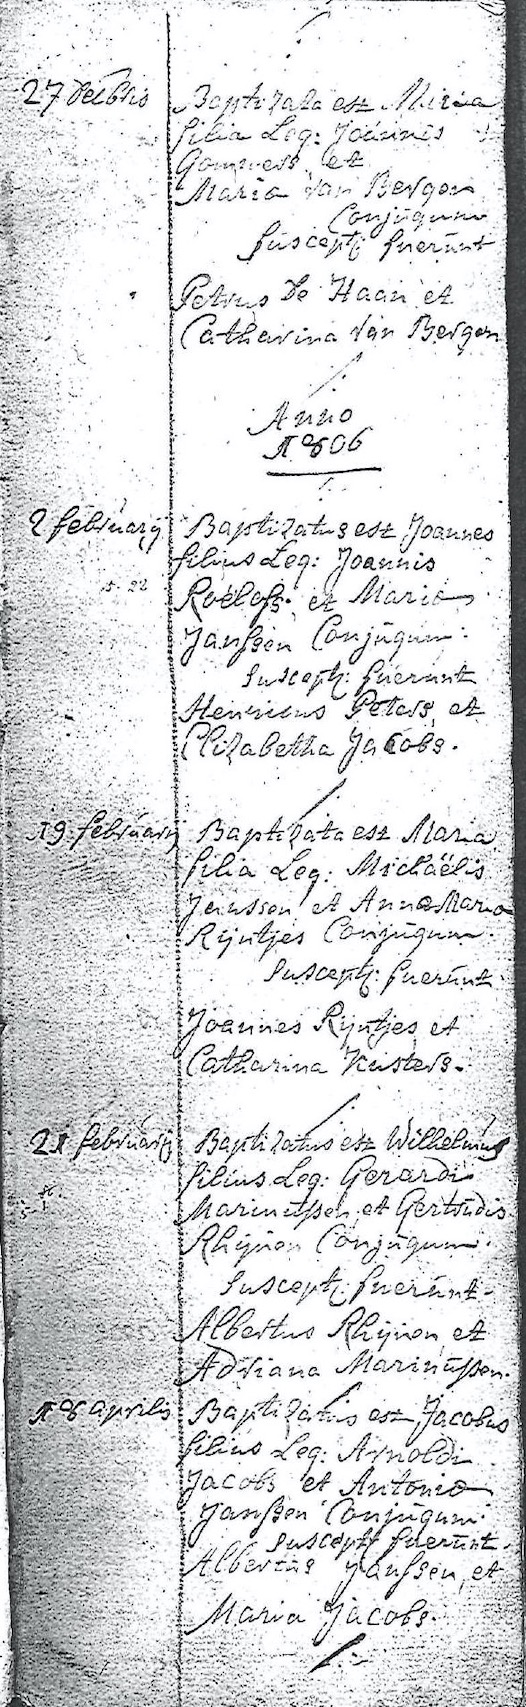 27 Decbris Baptizata est Maria
filia Leg: Joannis
et
Maria van Bergen
Conjugum
suscept: fuerunt
Petrus De Haan et
Catharina Van Bergen
Anno
1806
2 februarij Baptizatus est Joannes
filius Leg: Joannis
Roelofs. et Maria
Janssen Conjugum.
suscept: fuerunt
Henricus Peters et
Elizabetha Jacobs.
19 februarij Baptizata est Maria
filia Leg: Michaëlis
Janssen et Anna Maria
Rijntjes Conjugum.
suscept: fuerunt.
Joannes Rijntjes et
Catharina Kusters.
21 februarij Baptizatus est Wilhelmus
filius Leg: Gerardi
Marinussen et Gertrudis
Rhijnen Conjugum.
suscept: fuerunt.
Albertus Rhijnen et
Adriana Marinussen.
18 aprilis Baptizatus est Jacobus
filius Leg: Arnoldi
Jacobs et Antonia
Janssen Conjugum.
suscept: fuerunt.
Albertus Janssen et
Maria Jacobs.